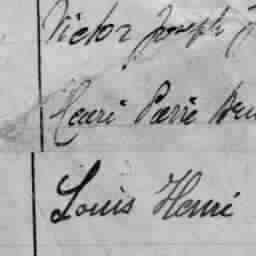 Victor Joseph
Henri Pierre
Louis Henri